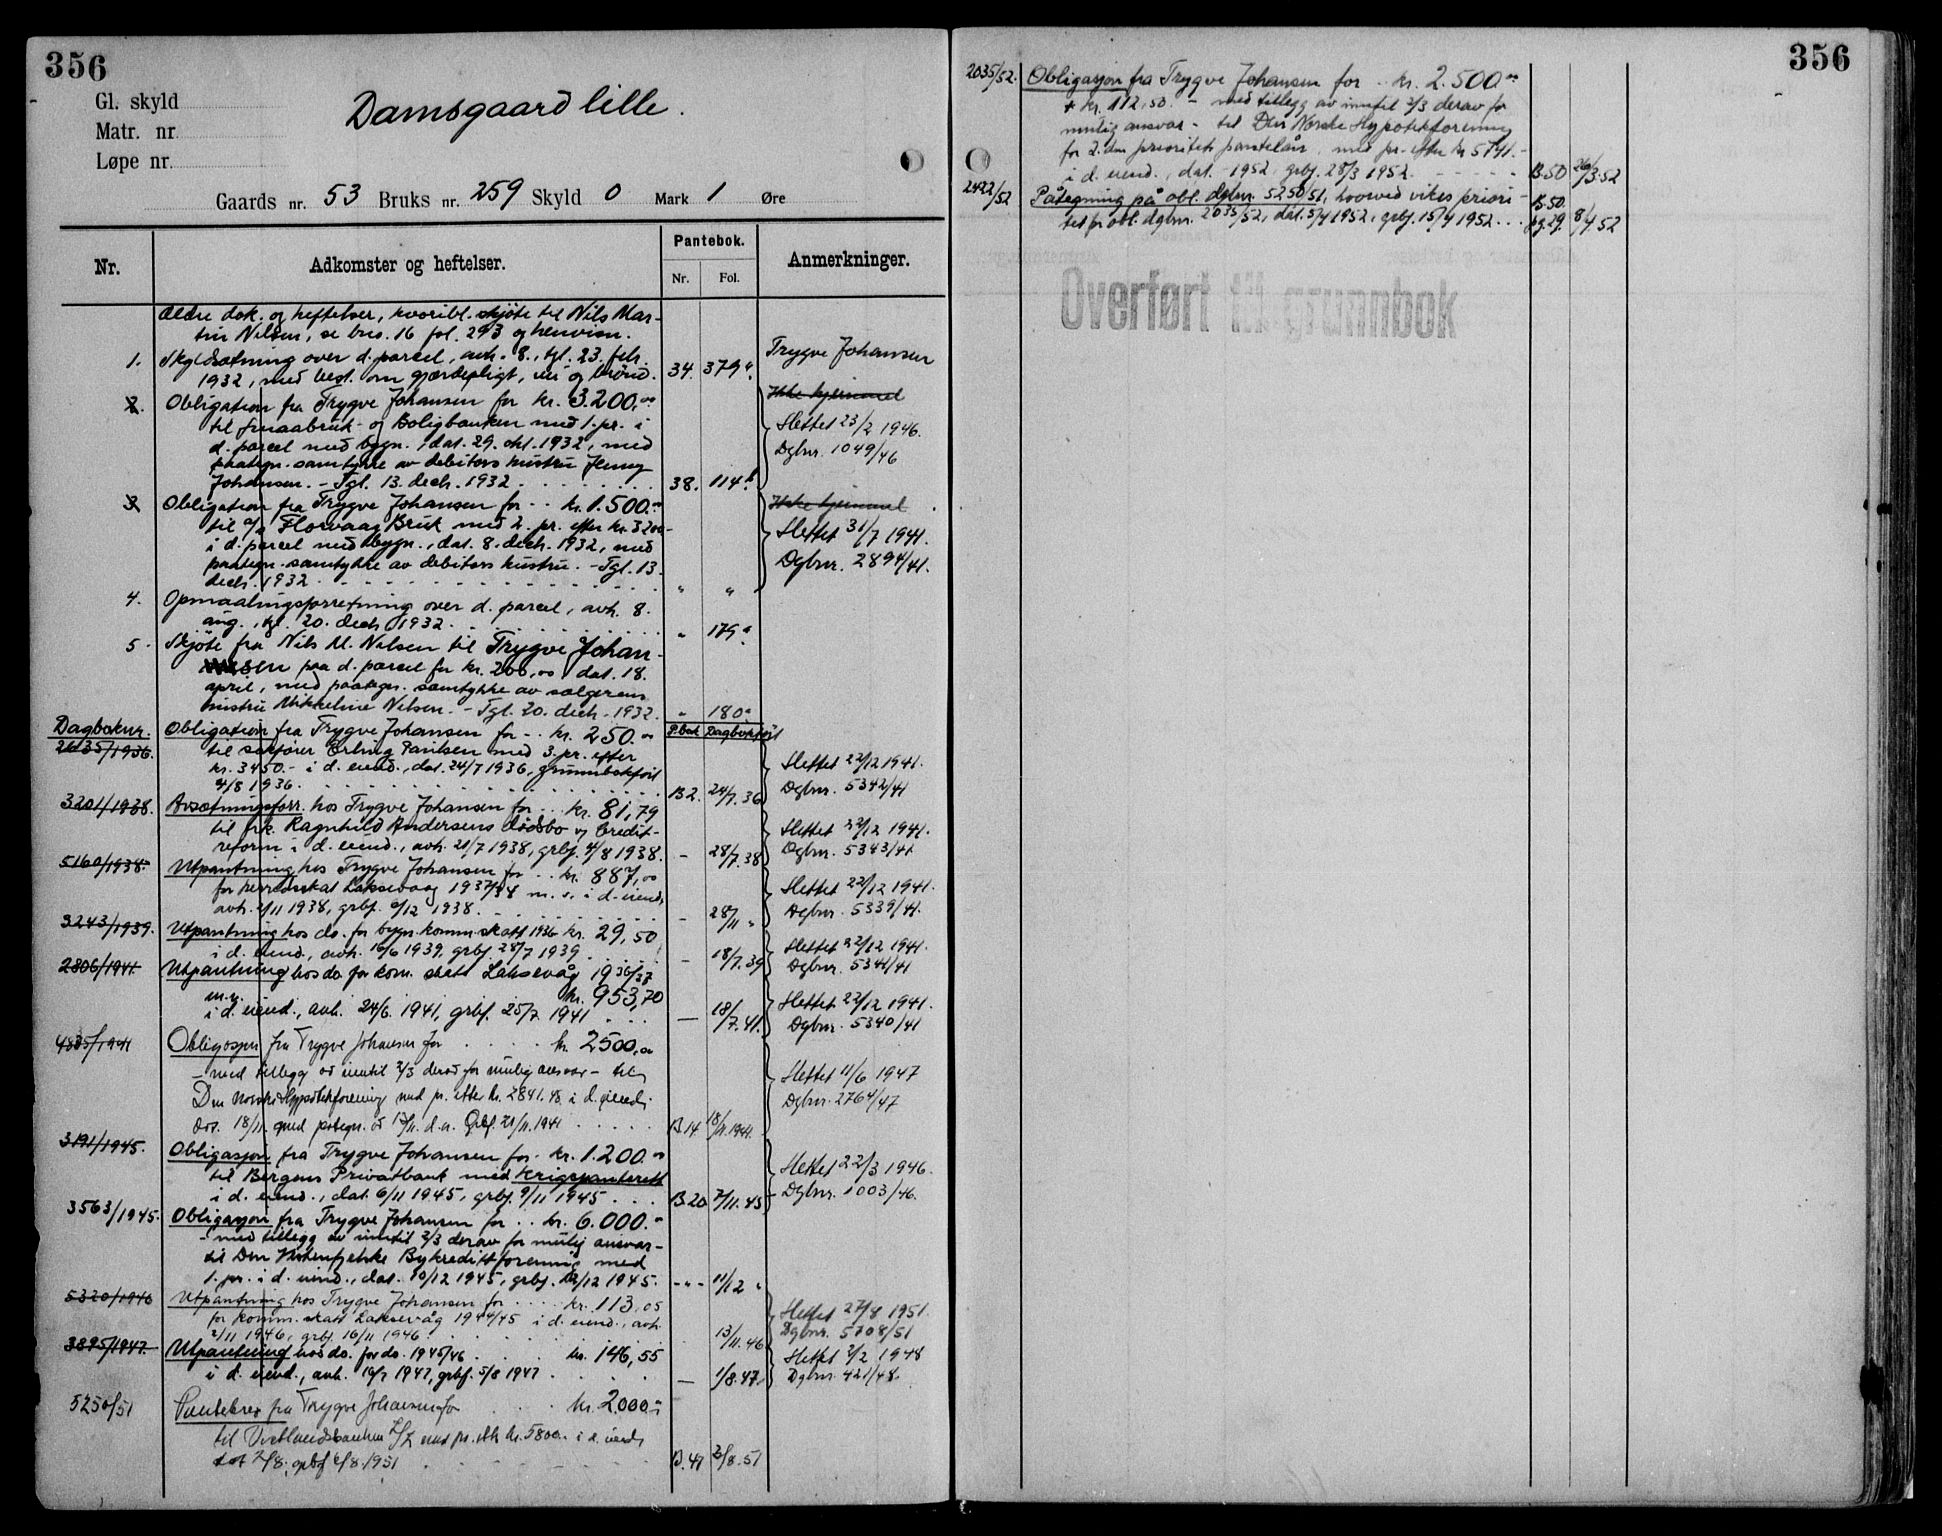 356
Gl. skyld
Matr. nr.
Løpe nr.
Damsgaard lille.
Gaards nr. 53 Bruks nr. 259 Skyld 0 Mark 1 Øre
Nr. Adkomster og heftelser. Pantebok. Nr. Fol. Anmerkninger.
Ældre dok. og heftelser, hvoribl. skjöte til Nils Mar-
tin Nilsen, se bno. 16 fol. 293 og henvisn.
1. Skyldsætning over d. parcel, avh. 8., tgl. 23. febr.
1932, med best. om gjærdepligt, vei og brönd. 34. 379a. Trygve Johansen
2. Obligation fra Trygve Johansen for kr. 3.200,00 Ikke hjemmel
til Smaabruk- og Boligbanken med 1. pr. i Slettet 23/2 1946.
d. parcel med bygn., dat. 29. okt. 1932, med Dgbnr. 1049/46
paategn. samtykke av debitors hustru Jenny
Johansen. - Tgl. 13. decb. 1932 38. 114b.
3. Obligation fra Trygve Johansen for kr. 1.500.00 Ikke hjemmel
til a/s Florvaag Bruk med 2. pr. efter kr. 3200- Slettet 31/7 1941.
i d. parcel med bygn., dat. 8. decb. 1932, med
paategn. samtykke av debitors hustru. - Tgl. 13. Dgbnr. 2894/41.
decb. 1932 " "
4. Opmaalingsforretning over d. parcel, avh. 8.
aug., tgl. 20. decb. 1932. " 179a.
5. Skjöte fra Nils M. Nilsen til Trygve Johan-
sen paa d. parcel for kr. 200,00, dat. 18.
april, med paategn. samtykke av sælgerens
hustru Mikkeline Nilsen. - Tgl. 20. decb. 1932. " 180a
Dagboknr. Obligation fra Trygve Johansen for kr. 250.00 P.bok Dagbokført
2635/1936. til sakfører Erling Paulsen med 3. pr. efter Slettet 22/12 1941.
kr. 3450.- i d. eiend., dat. 24/7 1936, grunnbokført
4/8 1936. B2. 24/7.36 Dgbnr. 5342/41
3201/1938. Avsætningsforr. hos Trygve Johansen for kr. 81,79
til frk. Ragnhild Andersens dödsbo v/ Credit- Slettet 22/12 1941.
reform i d. eiend., avh. 21/7 1938, grbf. 4/8 1938. - 28/7.38 Dgbnr. 5343/41
5160/1938. Utpantning hos Trygve Johansen for kr. 887,00
for herredsskat Laksevaag 1937/38 m. v. i d. eiend. Slettet 22/12 1941.
avh. 2/11 1938, grbf. 6/12 1938. - 28/11 " Dgbnr. 5339/41.
3243/1939. Utpantning hos do. for bygn. komm. skatt 1936 kr. 29,50 Slettet 22/12 1941.
i d. eiend., avh. 16/6 1939, grbf. 28/7 1939 - 18/7.39 Dgbnr. 5341/41
2806/1941 Utpantning hos do. for kom. skatt Laksevåg 1936/37
m. v. kr. 953,70 Slettet 22/12 1941.
i d. eiend., avh. 24/6. 1941, grbf. 25/7 1941 - 18/7.41. Dgbnr. 5340/41
4835/1941 Obligasjon fra Trygve Johansen for kr. 2500,00
- med tillegg av inntil 2/3 derav for mulig ansvar - til Slettet 11/6 1947
Den Norske Hypotekforening med pr. efter kr. 2841.48 i d. eiend. Dgbnr. 2764/47
dat. 18/11 med påtegn. av 17/11 d.a. Grbf. 21/11. 1941 B.14 18/11.1941.
3191/1945. Obligasjon fra Trygve Johansen for kr. 1.200.00
til Bergens Privatbank med krigspanterett Slettet 22/3 1946.
i d. eiend., dat. 6/11 1945, grbf. 9/11 1945 B.20 7/11.45 Dgbnr. 1003/46.
3563/1945. Obligasjon fra Trygve Johansen for kr. 6.000.00
- med tillegg av inntil 2/3 derav for mulig ansvar -
til Den Vestenfjelske Bykredittforening med
1. pr. i d. eiend., dat. 10/12 1945, grbf. 12/12 1945. -"- 11/12 "
5320/1946 Utpantning hos Trygve Johansen for kr. 113,05
for komm. skatt Laksevåg 1944/45 i d. eiend., avh. Slettet 27/8 1951.
2/11 1946, grbf. 16/11 1946. 13/11.46 Dgbnr. 5708/51
3895/1947. Utpantning hos do. for do. 1945/46 kr. 146,55 Slettet 2/2 1948
i d. eiend., avh. 10/7 1947, grbf. 5/8 1947 - 1/8.47. Dgbnr. 421/48.
5250/51 Pantebrev fra Trygve Johansen for kr. 2.000.00
til Vestlandsbanken A/L med pr. etter kr. 5800.- i d. eiend.
dat 2/8. grbf 6/8.1951 B.47 2/8.51
356
2035/52. Obligasjon fra Trygve Johansen for kr. 2.500.00
+ kr. 112,50. - med tillegg av inntil 2/3 derav for
mulig ansvar - til Den Norske Hypotekforening
for 2. dm prioritets pantelån, med pr. efter kr 5741.-
i d. eiend., dat. 1952, grbf. 28/3 1952. B.50 26/3.52
2422/52 Påtegning på obl. dgbnr. 5250/51, hvorved vikes priori- B.50.
tet for obl. dgbnr. 2035/52, dat. 5/4 1952, grbf. 15/4 1952. pg.29. 8/4 52
Overført til grunnbok